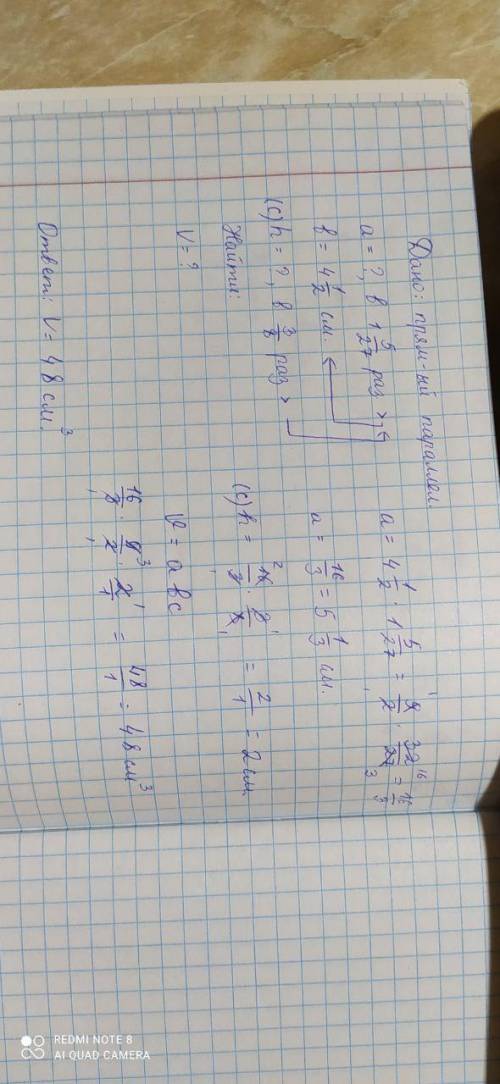 Дано: прям-ный параллел
a = ?, в 1 5/27 раз >
в = 4 1/2 см.
(c) h = ?, в 3/8 раз >
Найти:
V = ?
a = 4 1/2 · 1 5/27 = 9/2 · 32/27 = 16/3
a = 16/3 = 5 1/3 см.
(c) h = 16/3 · 3/8 = 2/1 = 2 см.
V = a в c
16/3 · 9/2 · 2/1 = 48/1 = 48 см³
Ответ: V = 48 см.³
REDMI NOTE 8
AI QUAD CAMERA